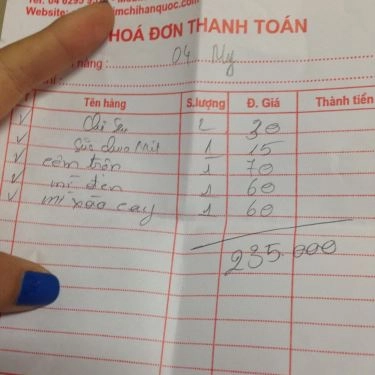 Tel: 04 6295
Website: imchihanquoc.com
HOÁ ĐƠN THANH TOÁN
hàng : 04 My
chỉ :
Tên hàng S.lượng Đ. Giá Thành tiền
2 30
Sữa chua 1 15
cơm trộn 1 70
mì đen 1 60
mì xào cay 1 60
235.000